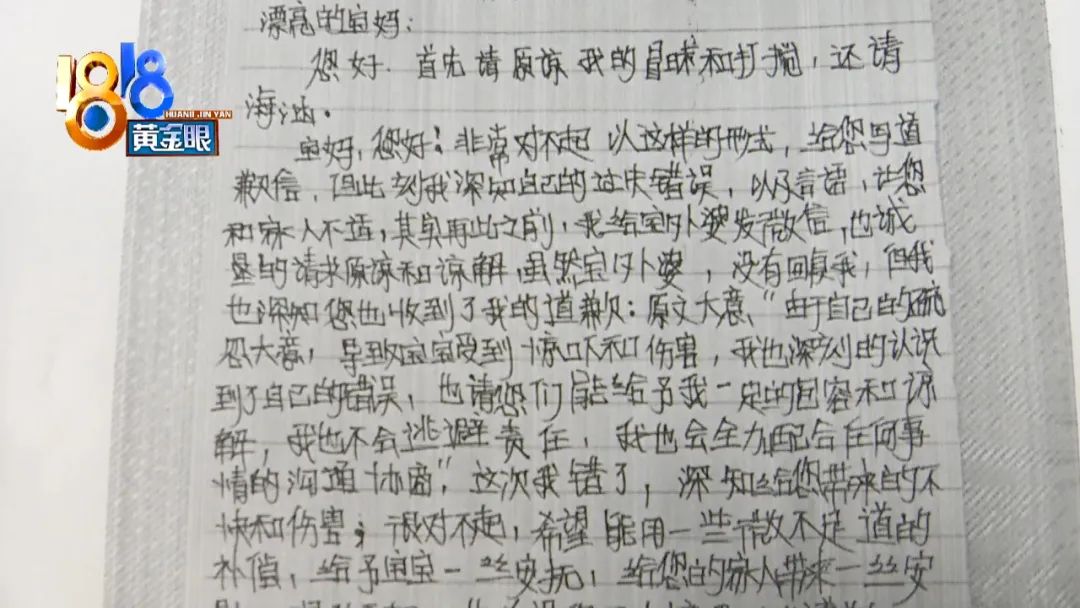 漂亮的宝妈:
您好.首先请原谅我的冒昧和打搅,还请
海涵.
1818
HUANG JIN YAN
黄金眼
宝妈,您好!非常对不起 以这样的形式,给您写道
歉信,但此刻我深知自己的过失错误,以及言语,让您
和家人不适,其实再此之前,我给宝外婆发微信,也诚
恳的请求原谅和谅解,虽然宝外婆,没有回复我,但我
也深知您也收到了我的道歉:原文大意、"由于自己的疏
忽大意,导致宝宝受到惊吓和伤害,我也深刻的认识
到了自己的错误,也请您们能给予我一定的包容和谅
解,我也不会逃避责任,我也会全力配合任何事
情的沟通协商",这次我错了,深知给您带来的不
快和伤害;很对不起,希望能用一些微不足道的
补偿,给予宝宝一丝安抚,给您的家人带来一丝安